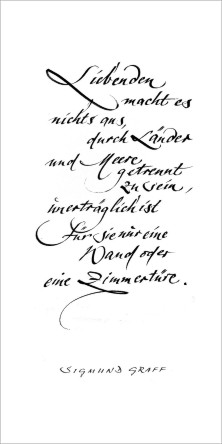 Liebenden
macht es
nichts aus,
durch Länder
und Meere
getrennt
zu sein,
unerträglich ist
für sie nur eine
Wand oder
eine Zimmertüre.
SIGMUND GRAFF